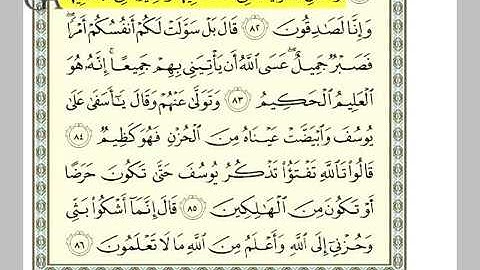 وَإِنَّا لَصَٰدِقُونَ ٨٢ قَالَ بَلْ سَوَّلَتْ لَكُمْ أَنفُسُكُمْ أَمْرًا
فَصَبْرٌ جَمِيلٌ عَسَى ٱللَّهُ أَن يَأْتِيَنِي بِهِمْ جَمِيعًا إِنَّهُۥ هُوَ
ٱلْعَلِيمُ ٱلْحَكِيمُ ٨٣ وَتَوَلَّىٰ عَنْهُمْ وَقَالَ يَٰٓأَسَفَىٰ عَلَىٰ
يُوسُفَ وَٱبْيَضَّتْ عَيْنَاهُ مِنَ ٱلْحُزْنِ فَهُوَ كَظِيمٌ ٨٤
قَالُوا۟ تَٱللَّهِ تَفْتَؤُا۟ تَذْكُرُ يُوسُفَ حَتَّىٰ تَكُونَ حَرَضًا
أَوْ تَكُونَ مِنَ ٱلْهَٰلِكِينَ ٨٥ قَالَ إِنَّمَآ أَشْكُوا۟ بَثِّي
وَحُزْنِيٓ إِلَى ٱللَّهِ وَأَعْلَمُ مِنَ ٱللَّهِ مَا لَا تَعْلَمُونَ ٨٦